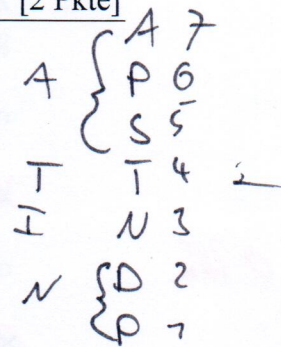 [2 Pkte]
A 7
A P 6
S 5
T T 4
I N 3
N D 2
P 1